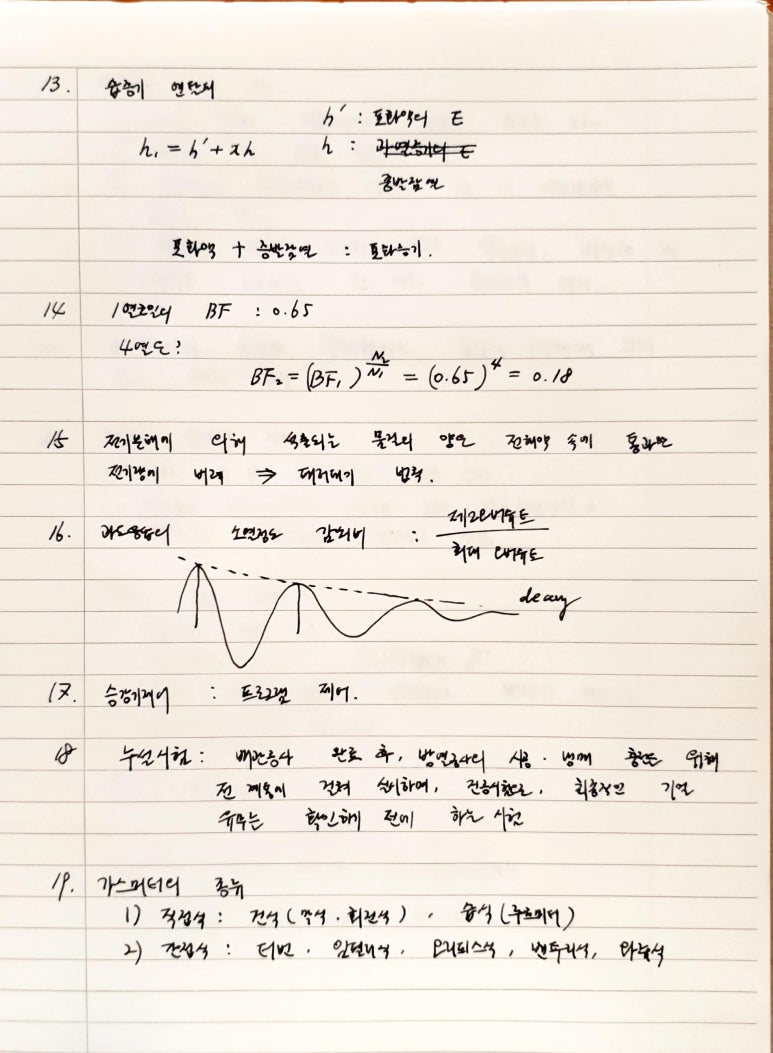 13. 습증기 엔탈피
h' : 포화액의 E
h₁ = h' + xh h : 과열증기의 E
증발잠열
포화액 + 증발잠열 : 포화증기.
14 1열코일의 BF : 0.65
4열은?
BF₂ = (BF₁)^(N₂/N₁) = (0.65)⁴ = 0.18
15 전기분해에 의해 석출되는 물질의 양은 전해액 속에 통과한
전기량에 비례 ⇒ 패러데이 법칙.
16. 과도응답의 소연정도 감쇠비 : 제2오버슈트 / 최대 오버슈트
decay
17. 승강기제어 : 프로그램 제어.
18 누설시험 : 배관공사 완료 후, 방열공사의 시공·냉매 충전을 위해
전 계통에 걸쳐 실시하며, 최종적인 기밀
유무는 확인하기 전에 하는 시험
19. 가스미터의 종류
1) 직접식 : 건식(막식·회전식), 습식(루트미터)
2) 간접식 : 터빈, 오리피스식, 벤투리식, 와류식